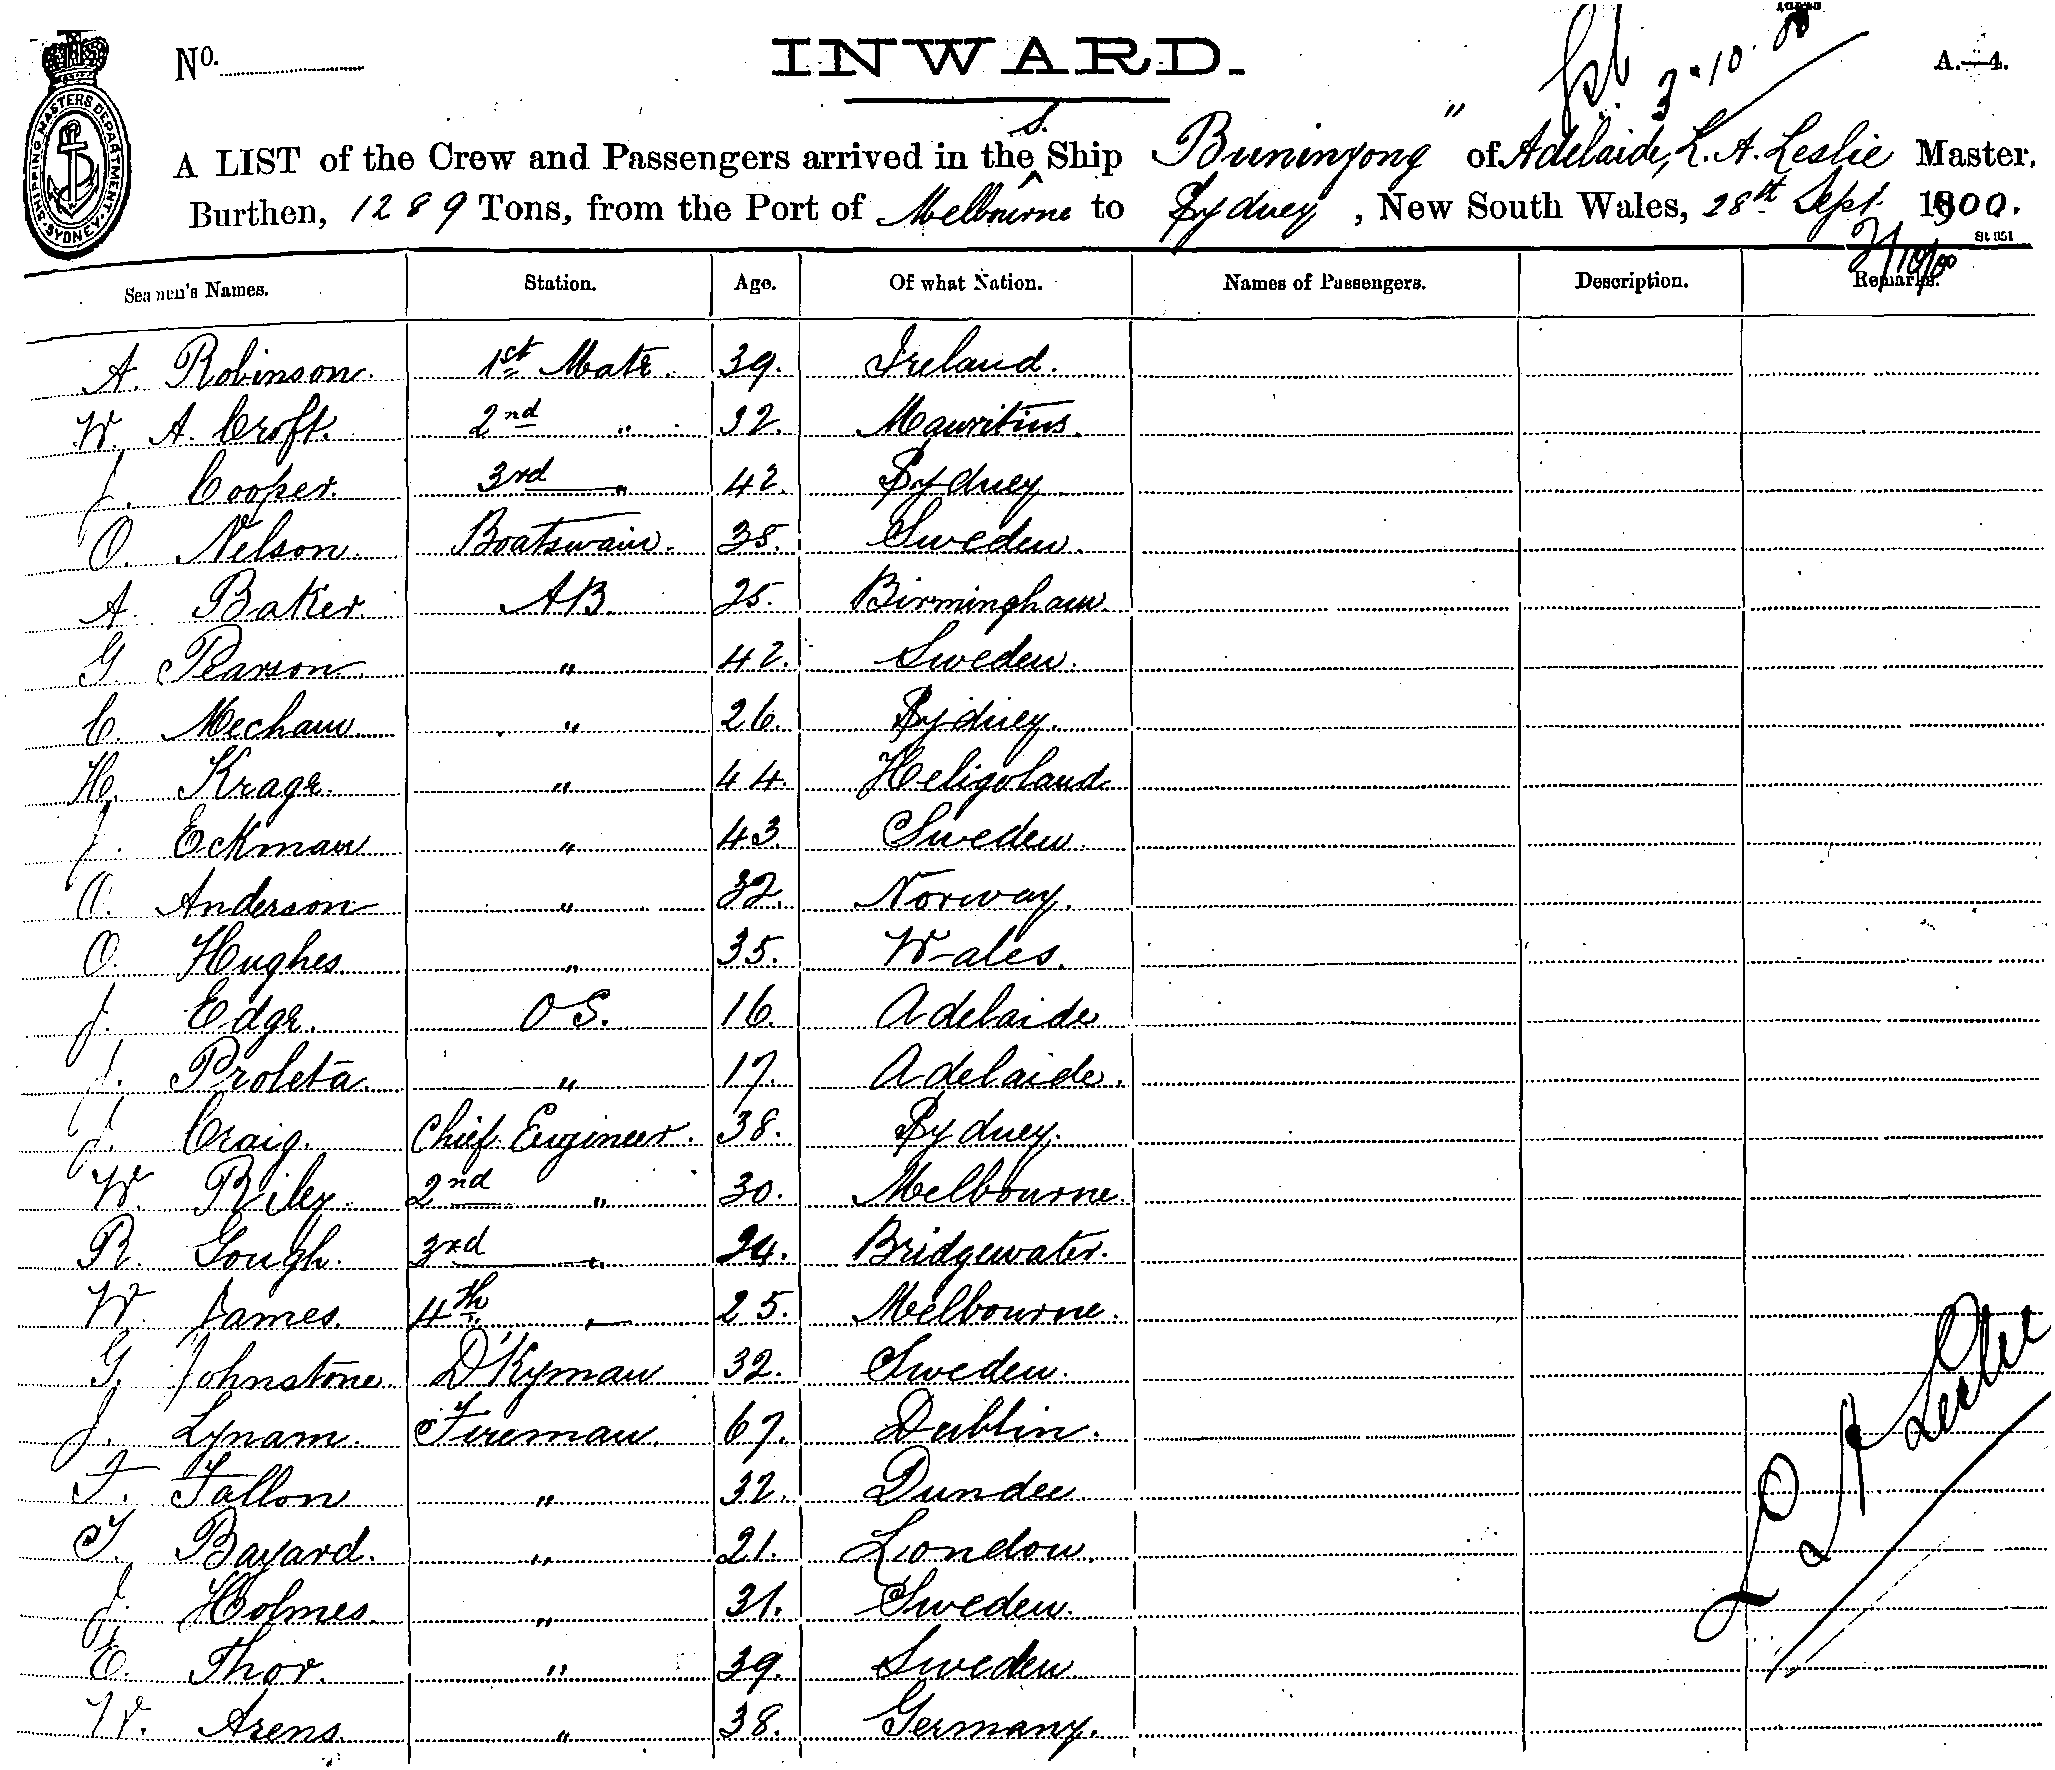 No.
INWARD.
3.10.00
A.—4.
SHIPPING MASTERS DEPARTMENT SYDNEY
S.
A LIST of the Crew and Passengers arrived in the Ship Buninyong " of Adelaide, L. A. Leslie Master,
Burthen, 1289 Tons, from the Port of Melbourne to Sydney, New South Wales, 28th Sept. 1900.
St 051
3/10/00
Seamen's Names. Station. Age. Of what Nation. Names of Passengers. Description. Remarks.
A. Robinson. 1st Mate. 39. Ireland.
W. A. Croft. 2nd " 32. Mauritius.
J. Cooper. 3rd " 42. Sydney
O. Nelson. Boatswain. 38. Sweden.
A. Baker. AB. 25. Birmingham.
G. Pearson. " 42. Sweden.
C. Mecham " 26. Sydney.
H. Krage. " 44. Heligoland.
J. Eckman " 43. Sweden.
O. Anderson " 32. Norway.
O. Hughes " 35. Wales.
J. Edge. OS. 16. Adelaide
J. Proleta. " 17. Adelaide.
J. Craig. Chief Engineer. 38. Sydney.
W. Riley. 2nd " 30. Melbourne.
R. Gough. 3rd " 24. Bridgewater.
W. James. 4th " 25. Melbourne.
G. Johnstone. D'Kyman 32. Sweden.
J. Lynam. Fireman. 67. Dublin.
F. Fallon " 32. Dundee
T. Bayard. " 21. London.
J. Holmes. " 31. Sweden.
E. Thor. " 39. Sweden
W. Arens. " 38. Germany.
L A Leslie